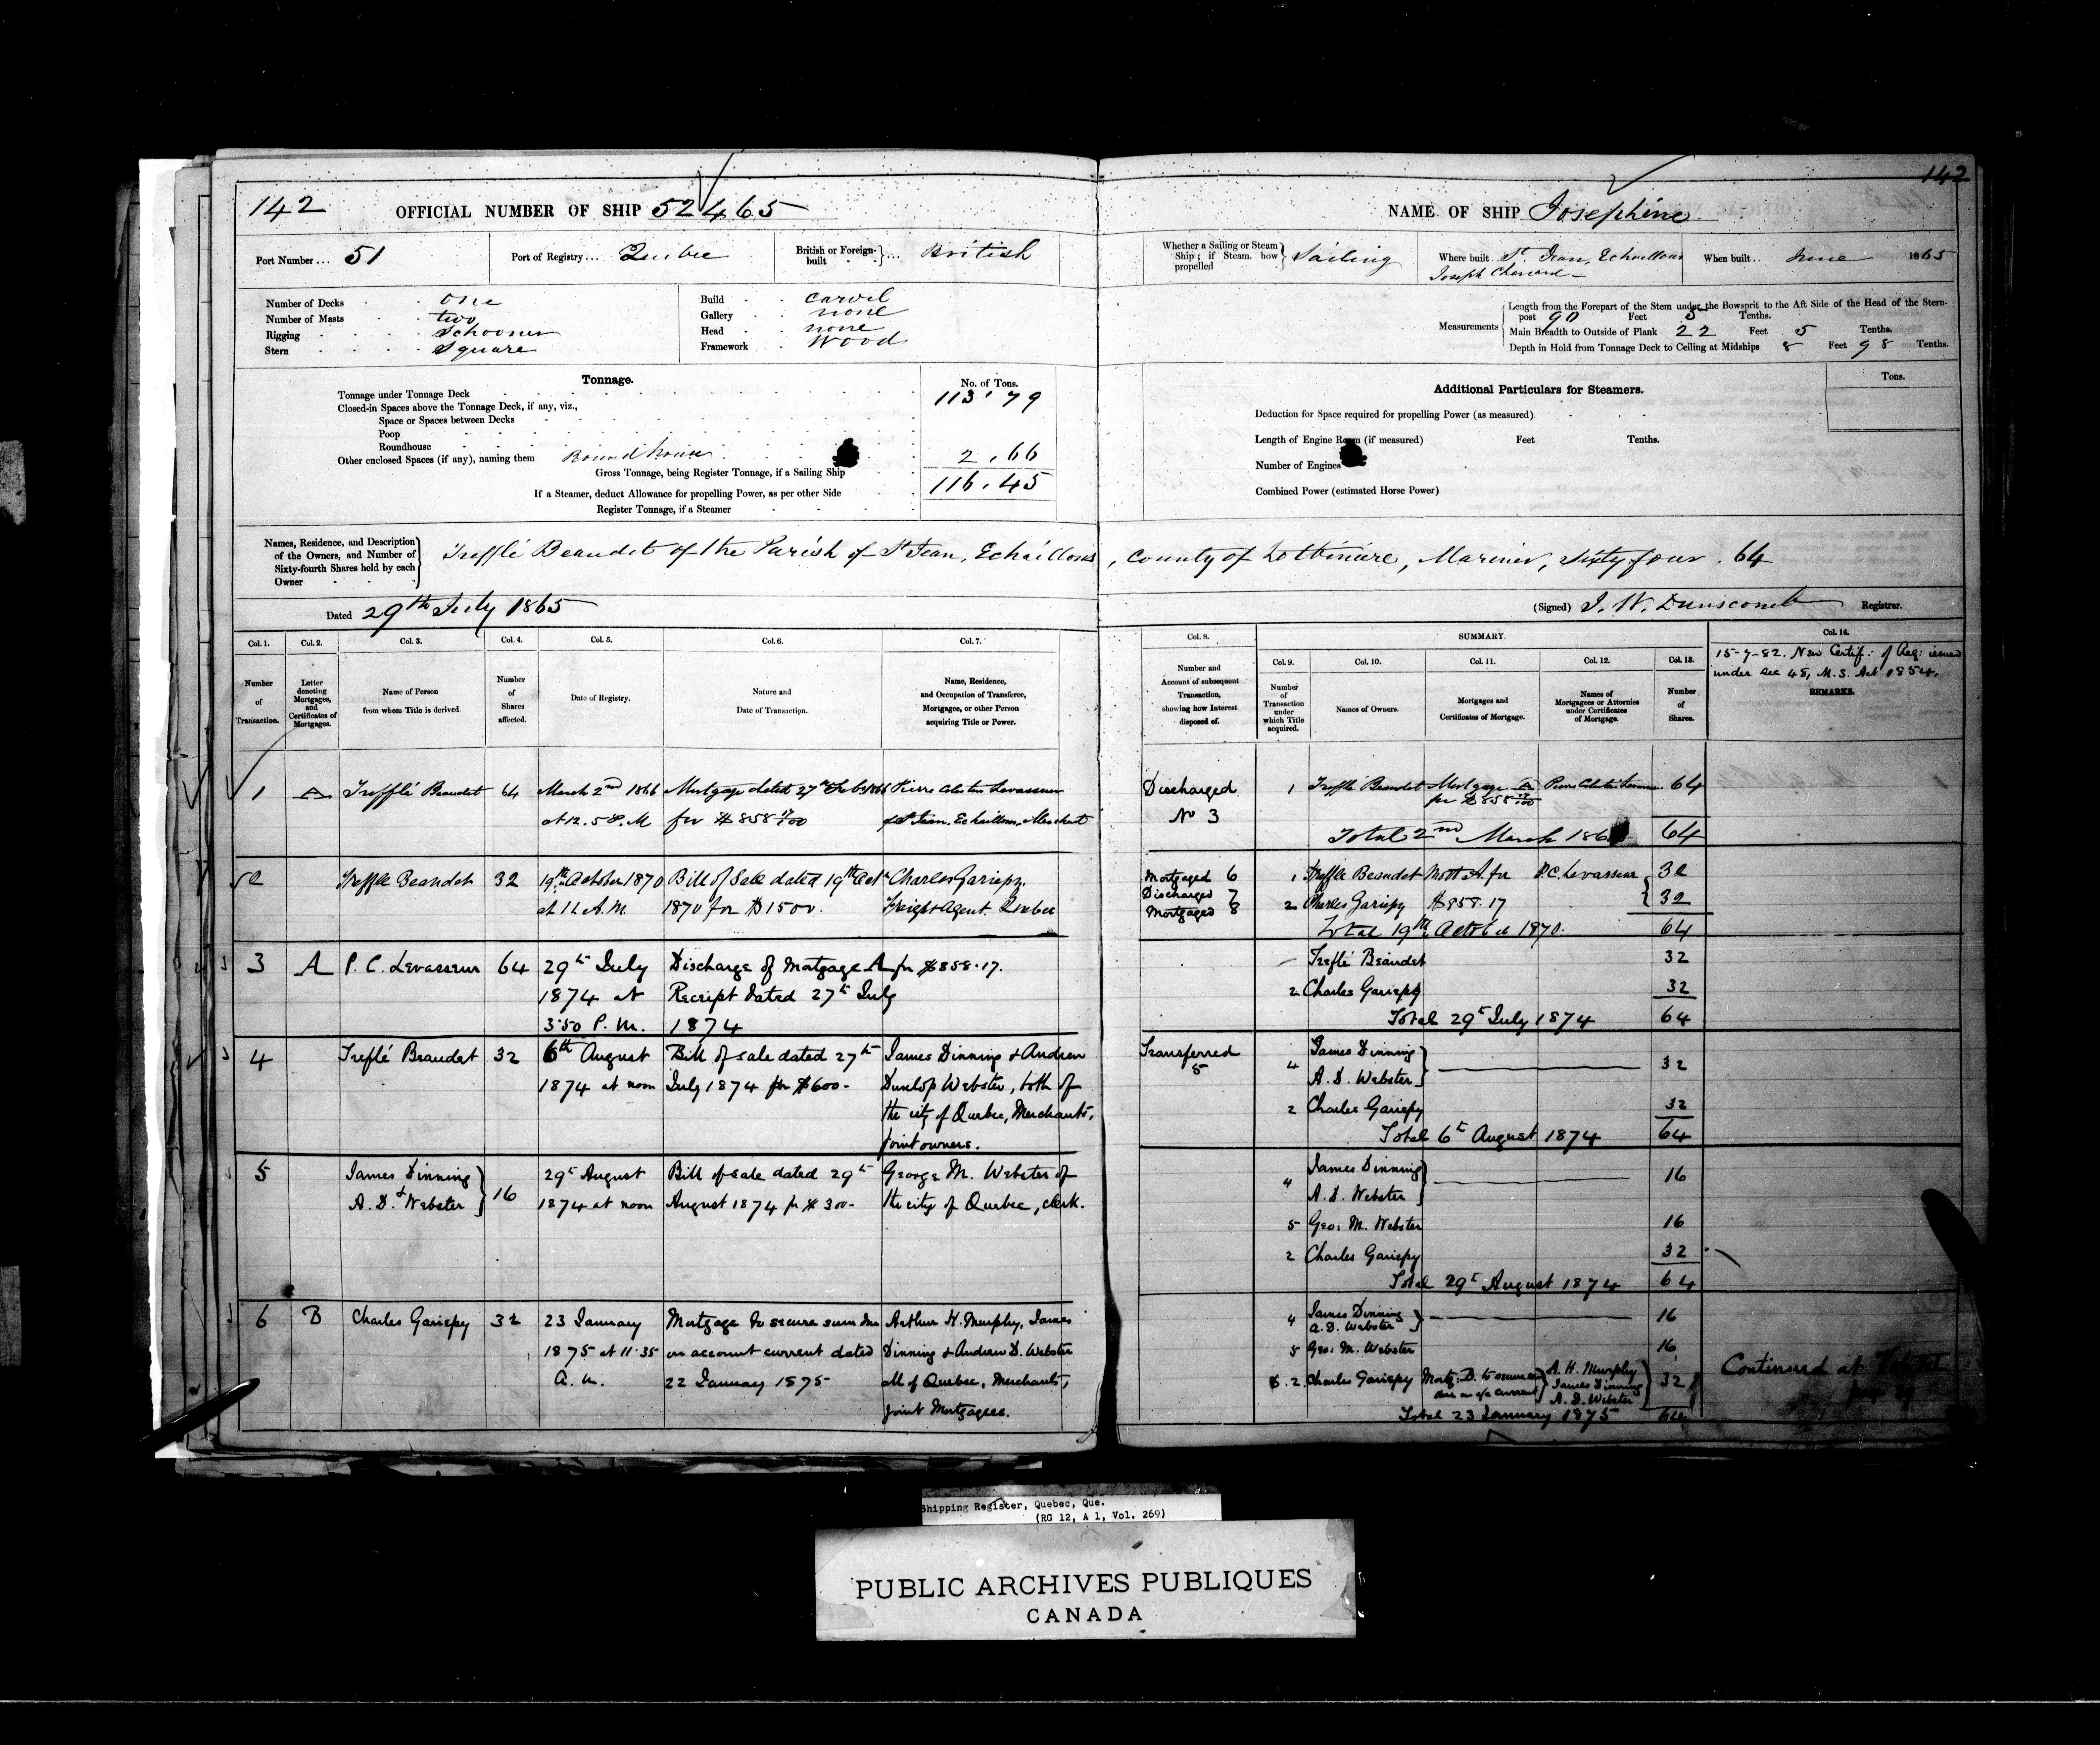 142
142 OFFICIAL NUMBER OF SHIP 52465
NAME OF SHIP Josephine
Port Number... 51
Port of Registry... Quebec
British or Foreign-built ... British
Whether a Sailing or Steam Ship; if Steam, how propelled Sailing
Where built St. Jean, Echaillons
Joseph
When built.. June 1865
Number of Decks one
Number of Masts two
Rigging Schooner
Stern Square
Build carvel
Gallery none
Head none
Framework wood
Measurements
Length from the Forepart of the Stem under the Bowsprit to the Aft Side of the Head of the Stern-
post 90 Feet 5 Tenths.
Main Breadth to Outside of Plank 22 Feet 5 Tenths.
Depth in Hold from Tonnage Deck to Ceiling at Midships 8 Feet 98 Tenths.
Tonnage.
No. of Tons.
Tonnage under Tonnage Deck 113.79
Closed-in Spaces above the Tonnage Deck, if any, viz.,
Space or Spaces between Decks
Poop
Roundhouse
Other enclosed Spaces (if any), naming them Roundhouse 2.66
Gross Tonnage, being Register Tonnage, if a Sailing Ship 116.45
If a Steamer, deduct Allowance for propelling Power, as per other Side
Register Tonnage, if a Steamer
Additional Particulars for Steamers.
Tons.
Deduction for Space required for propelling Power (as measured)
Length of Engine Room (if measured) Feet Tenths.
Number of Engines
Combined Power (estimated Horse Power)
Names, Residence, and Description
of the Owners, and Number of
Sixty-fourth Shares held by each
Owner
Trefflé Beaudet of the Parish of St Jean, Echaillons, County of Lotbinière, Mariner, Sixty four . 64
Dated 29th July 1865
(Signed) J. W. Dunscomb Registrar.
Col. 1. Col. 2. Col. 3. Col. 4. Col. 5. Col. 6. Col. 7.
Number of Transaction.
Letter denoting Mortgages, and Certificates of Mortgages.
Name of Person from whom Title is derived.
Number of Shares affected.
Date of Registry.
Nature and Date of Transaction.
Name, Residence, and Occupation of Transferee, Mortgagee, or other Person acquiring Title or Power.
Col. 8. SUMMARY. Col. 14.
Col. 9. Col. 10. Col. 11. Col. 12. Col. 13.
Number and Account of subsequent Transaction, showing how Interest disposed of.
Number of Transaction under which Title acquired.
Names of Owners.
Mortgages and Certificates of Mortgage.
Names of Mortgagees or Attornies under Certificates of Mortgage.
Number of Shares.
15-7-82. New Certif: of Reg: issued
under sec 48, M.S. Act 1854.
REMARKS.
1 A Trefflé Beaudet 64 March 2nd 1866 Mortgage dated 27th Feb 1866 Pierre Celestin Levasseur
at 12.5 P.M for $858 17/100 of St Jean, Echaillons, Merchant
Discharged 1 Trefflé Beaudet Mortgage A Pierre Celestin 64
No 3 for $858 17/100
Total 2nd March 186 64
2 Treffle Beaudet 32 19th October 1870 Bill of Sale dated 19th Octr Charles Gariepy.
at 11 A.M. 1870 for $1500. Freight Agent. Quebec
Mortgaged 6 1 Treffle Beaudet Mort A. for P.C. Levasseur 32
Discharged 7
Mortgaged 8 2 Charles Gariepy $858.17 32
Total 19th October 1870. 64
3 A P. C. Levasseur 64 29th July Discharge of Mortgage A for $858.17.
1874 at Receipt dated 27th July
3.50 P.M. 1874
Treflé Beaudet 32
2 Charles Gariepy 32
Total 29th July 1874 64
4 Treflé Beaudet 32 6th August Bill of sale dated 27th James Dinning & Andrew
1874 at noon July 1874 for $600- Dunlop Webster, both of
the city of Quebec, Merchants,
joint owners.
Transferred 5
4 James Dinning
A. D. Webster 32
2 Charles Gariepy 32
Total 6th August 1874 64
5 James Dinning & 16 29th August Bill of sale dated 29th George M. Webster of
A. D. Webster 1874 at noon August 1874 for $300- the city of Quebec, clerk.
4 James Dinning
A. D. Webster 16
5 Geo: M. Webster 16
2 Charles Gariepy 32
Total 29th August 1874 64
6 B Charles Gariepy 32 23 January Mortgage to secure sum due Arthur H. Murphy, James
1875 at 11.35 on account current dated Dinning & Andrew D. Webster
A.M. 22 January 1875 all of Quebec, Merchants,
joint Mortgagees.
4 James Dinning
A. D. Webster 16
5 Geo: M. Webster 16
6. 2. Charles Gariepy Mortg: B. to secure sum A. H. Murphy 32
due on a/c current James Dinning
A. D. Webster
Total 23 January 1875 64
Continued at
Shipping Register, Quebec, Que.
(RG 12, A 1, Vol. 269)
PUBLIC ARCHIVES PUBLIQUES
CANADA